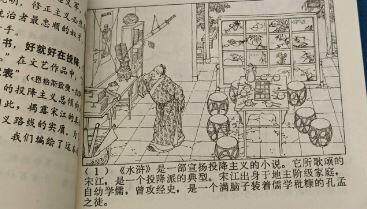 治者最忠顺的奴才
书，好就好在投降
在文艺作品中，
的投降主义总情的
此，揭露宋江的
义路线的实质，为
我们编绘了这本
（1）《水浒》是一部宣扬投降主义的小说。它所歌颂的
宋江，是一个投降派的典型。宋江出身于地主阶级家庭，
自幼学儒，曾攻经史，是一个满脑子装着儒学秕糠的孔孟
之徒。